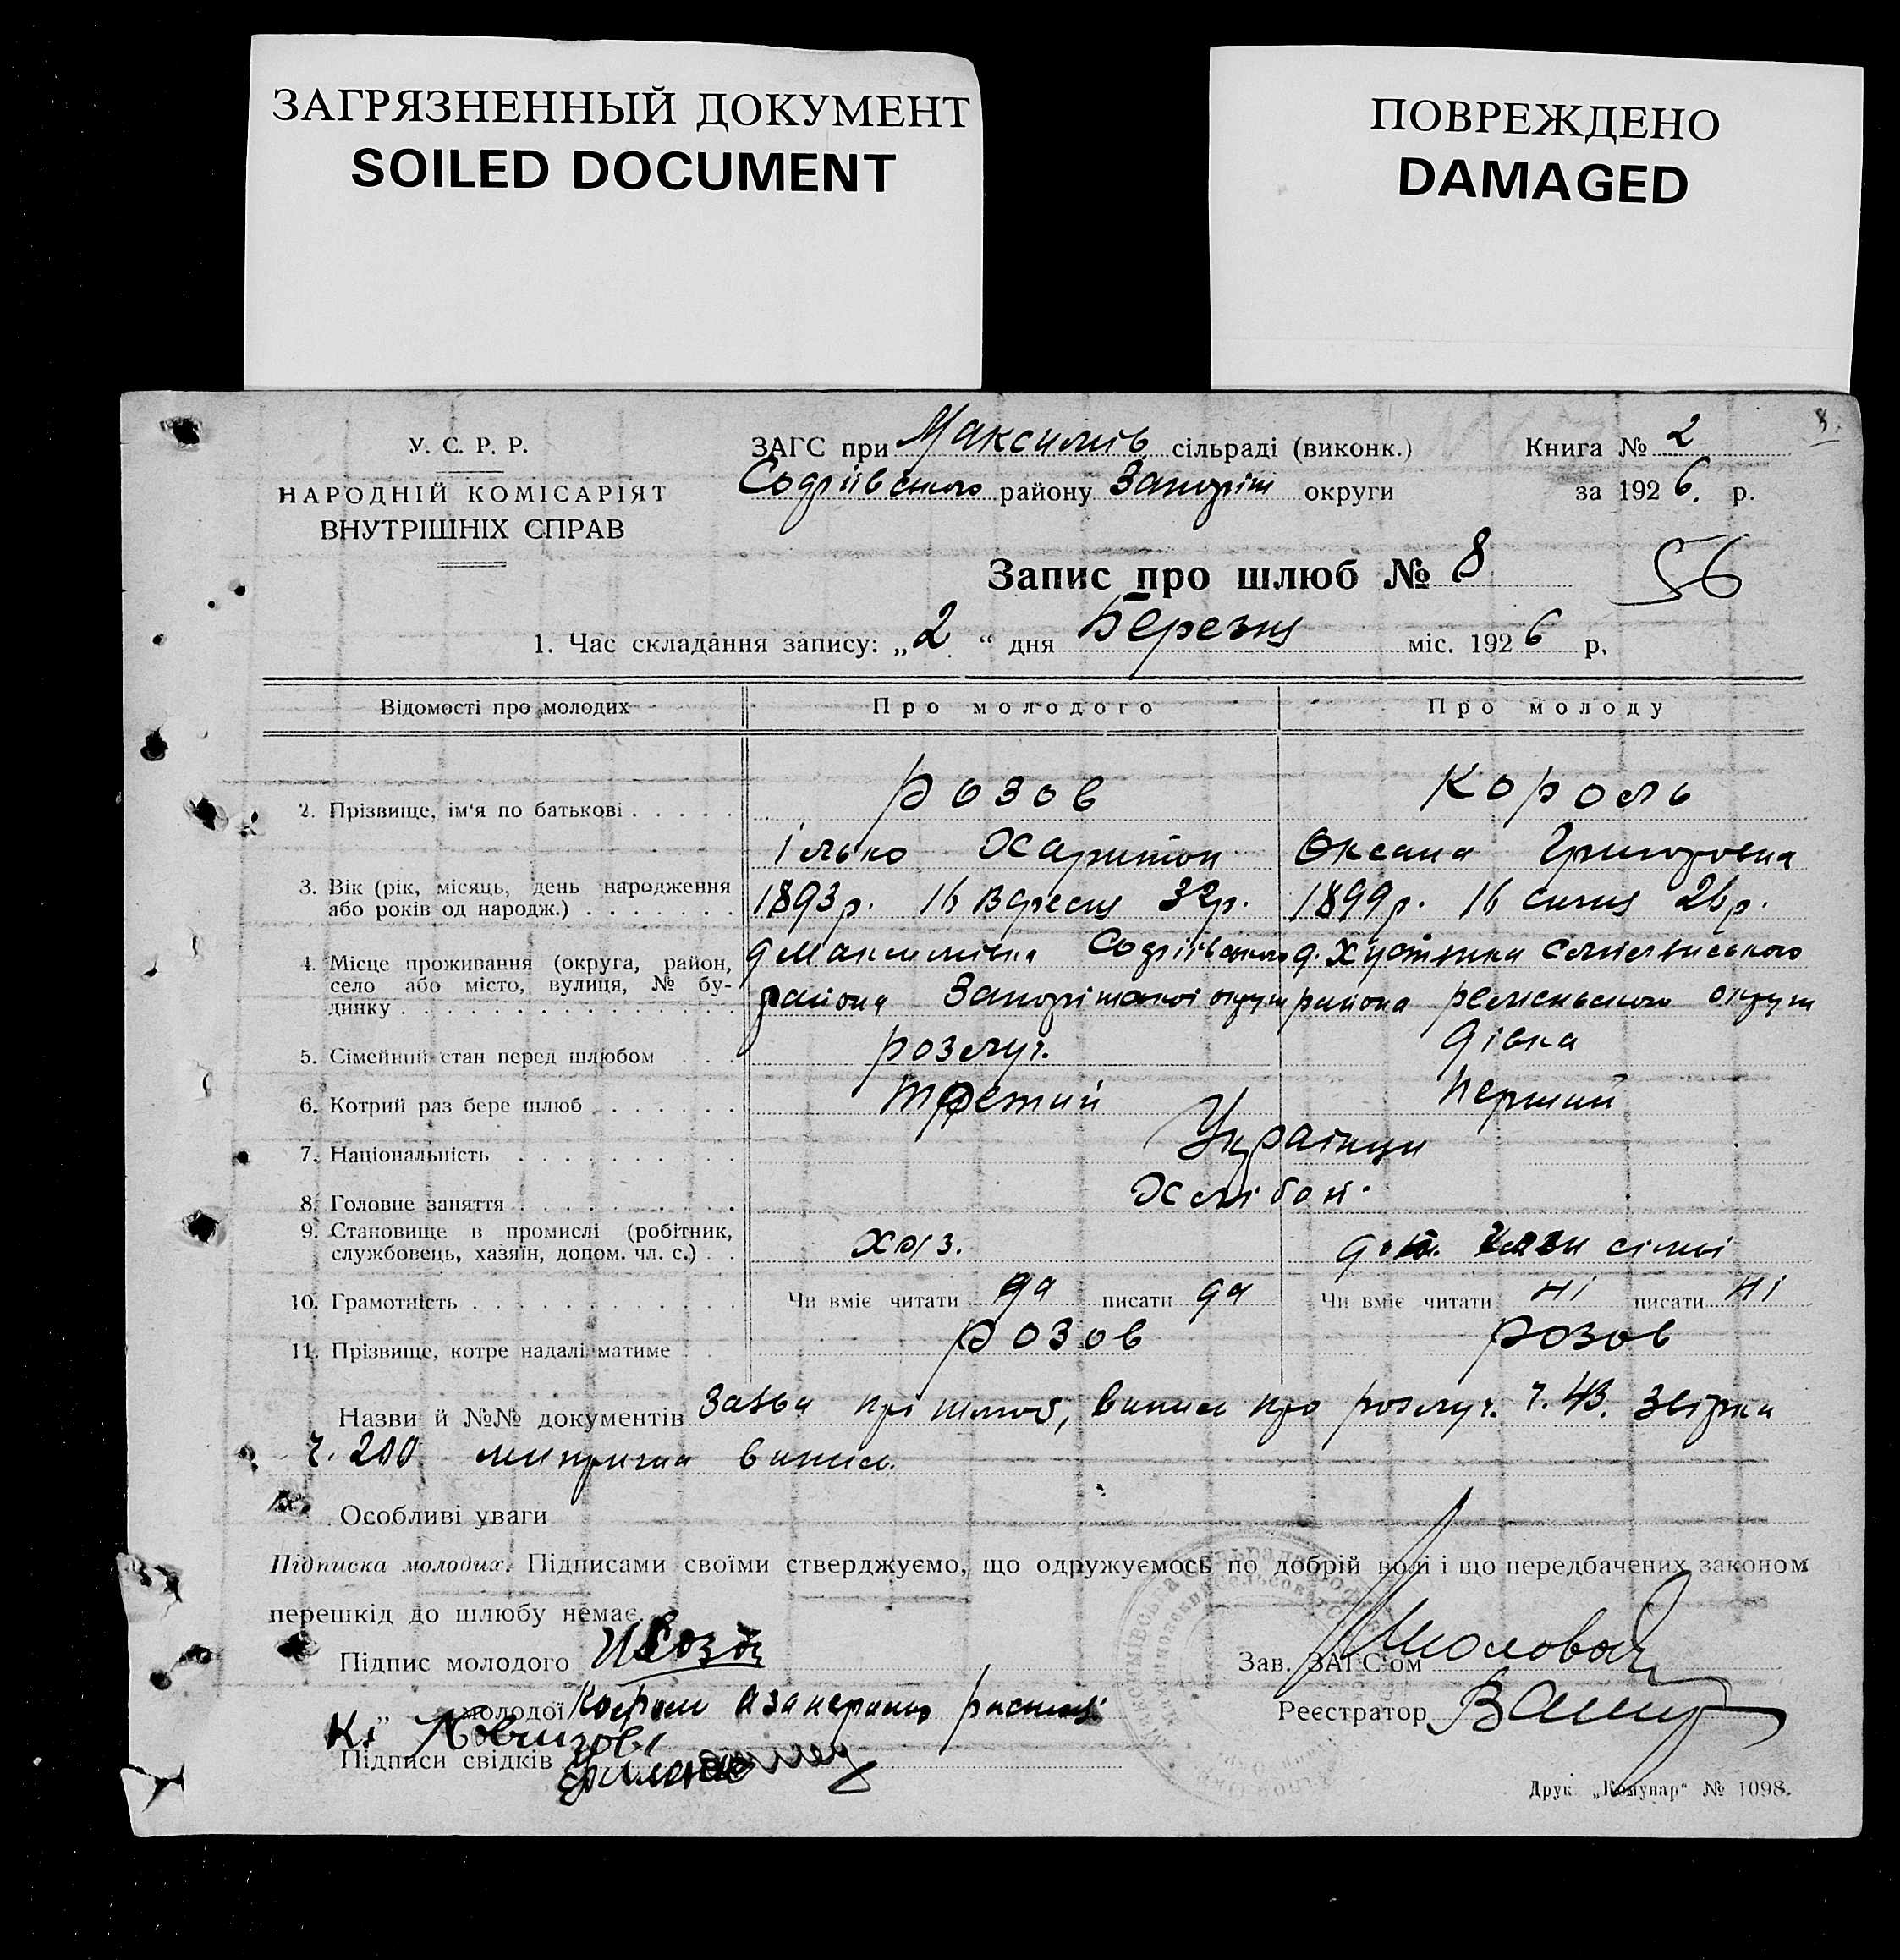 ЗАГРЯЗНЕННЫЙ ДОКУМЕНТ
SOILED DOCUMENT
ПОВРЕЖДЕНО
DAMAGED
8.
У. С. Р. Р.
НАРОДНІЙ КОМІСАРІЯТ
ВНУТРІШНІХ СПРАВ
ЗАГС при Максимів сільраді (виконк.)
Софіївського району Запоріж округи
Книга № 2
за 1926. р.
Запис про шлюб № 8
56
1. Час складання запису: „2“ дня Березня міс. 1926 р.
Відомості про молодих Про молодого Про молоду
2. Прізвище, ім'я по батькові . . . . . Розов Король
Ілько Харитон Оксана Григоровна
3. Вік (рік, місяць, день народження
або років од народж.) . . . . . . . 1893р. 16 Вересня 32р. 1899р. 16 сичня 26р.
4. Місце проживання (округа, район,
село або місто, вулиця, № бу-
динку . . . . . . . . . . . . . . .
д Максимівка Софіївського
района Запоріжської округи
д.
района округи
5. Сімейний стан перед шлюбом . . . розлуч. дівка
6. Котрий раз бере шлюб . . . . . . третий перший
7. Національність . . . . . . . . . Українци
8. Головне заняття . . . . . . . . . Хлібоп.
9. Становище в промислі (робітник,
службовець, хазяїн, допом. чл. с.) . . хаз. сімї
10. Грамотність . . . . . . . . . . . . Чи вміє читати да писати да Чи вміє читати ні писати ні
11. Прізвище, котре надалі матиме Розов Розов
Назви й №№ документів Заява про шлюб, випис про розлуч. ч. 43.
ч. 200 метрична випис.
Особливі уваги
Підписка молодих. Підписами своїми стверджуємо, що одружуємось по добрій волі і що передбачених законом
перешкід до шлюбу немає.
Підпис молодого
„ молодої
Підписи свідків
Зав. ЗАГС'ом
Реєстратор
Друк „Комунар“ № 1098.